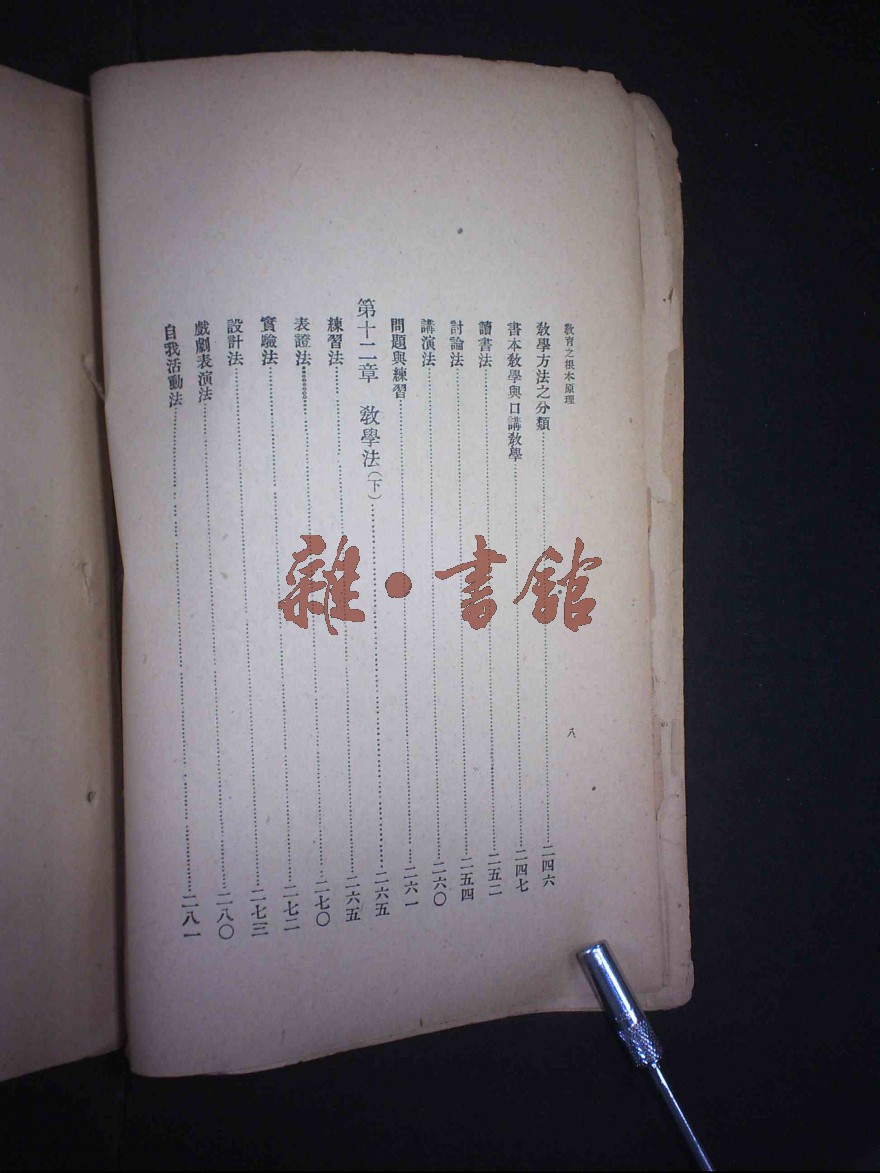 教育之根本原理
八
教學方法之分類………二四六
書本教學與口講教學………二四七
讀書法………二五二
討論法………二五四
講演法………二六〇
問題與練習………二六一
第十二章　教學法（下）………二六五
練習法………二六五
表證法………二七〇
實驗法………二七二
設計法………二七三
戲劇表演法………二八〇
自我活動法………二八一
雜·書館